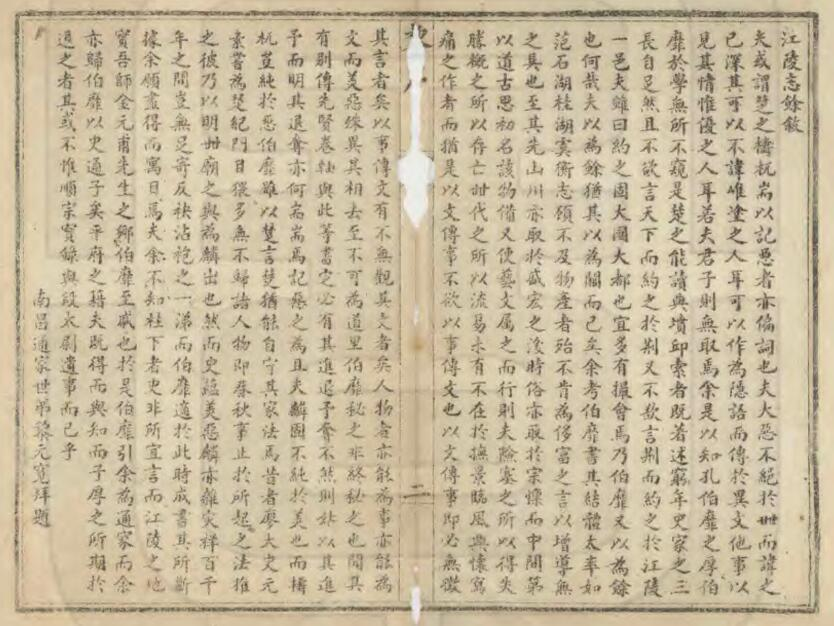 江陵志餘敘
夫或謂楚之檮杌耑以記惡者亦偏詞也夫大惡不絕於世而諱之
已深其可以不諱唯塗之人耳可以作為隱語而傳於異文他事以
見其情惟優之人耳若夫君子則無取焉余是以知孔伯靡之厚伯
靡於學無所不窺是楚之能讀典墳邱索者既著述窮年史家之三
長自足然且不欲言天下而約之於荆又不欲言荆而約之於江陵
一邑夫雖曰約之固大國大都也宜多有撮會焉乃伯靡又以為餘
也何哉夫以為餘猶其以為闕而已矣余考伯靡書其結體大率如
范石湖桂湖虞衡志領不及物產者殆不肯為侈富之言以增導無
之具也至其先山川亦取於盛宏之後時俗亦取於宗懍而中間第
以道古思初名該物備又使藝文属之而行則夫險塞之所以得失
勝概之所以存亡世代之所以流易未有不在於撫景臨風興懷寫
痛之作者而猶是以文傳事不欲以事傳文也以文傳事即必無徵
其言者矣以事傳文有不無觀其文者矣人物者亦能為事亦能為
文而美惡殊異其相去至不可為道里伯靡秘之非終秘之也間其
有別傳先賢卷軸與此等書定必有其進退予奪不然則妳以其進
予而明其退奪亦何耑耑焉記惡之為且夫麟固不純於美也而檮
杌豈純於惡伯靡雖以楚言楚猶能自守其家法焉昔者廖大史元
素嘗為楚紀門目猥多無不歸諸人物即春秋事止於所起之法推
之彼乃以明世廟之興為麟出也然而史蘊美惡麟亦雜灾祥百千
年之間豈無足寄反袂沾袍之一涕而伯靡適於此時成書其所斷
據余頗盡得而寓目焉夫余不知柱下者史非所宜言而江陵之地
實吾師金元甫先生之鄉伯靡至戚也於是伯靡引余為通家而余
亦歸伯靡以史通子矣平府之籍夫既得而與知而子厚之所期於
退之者其或不惟順宗實錄與段太尉遺事而已乎
南昌通家世弟黎元寬拜題
二